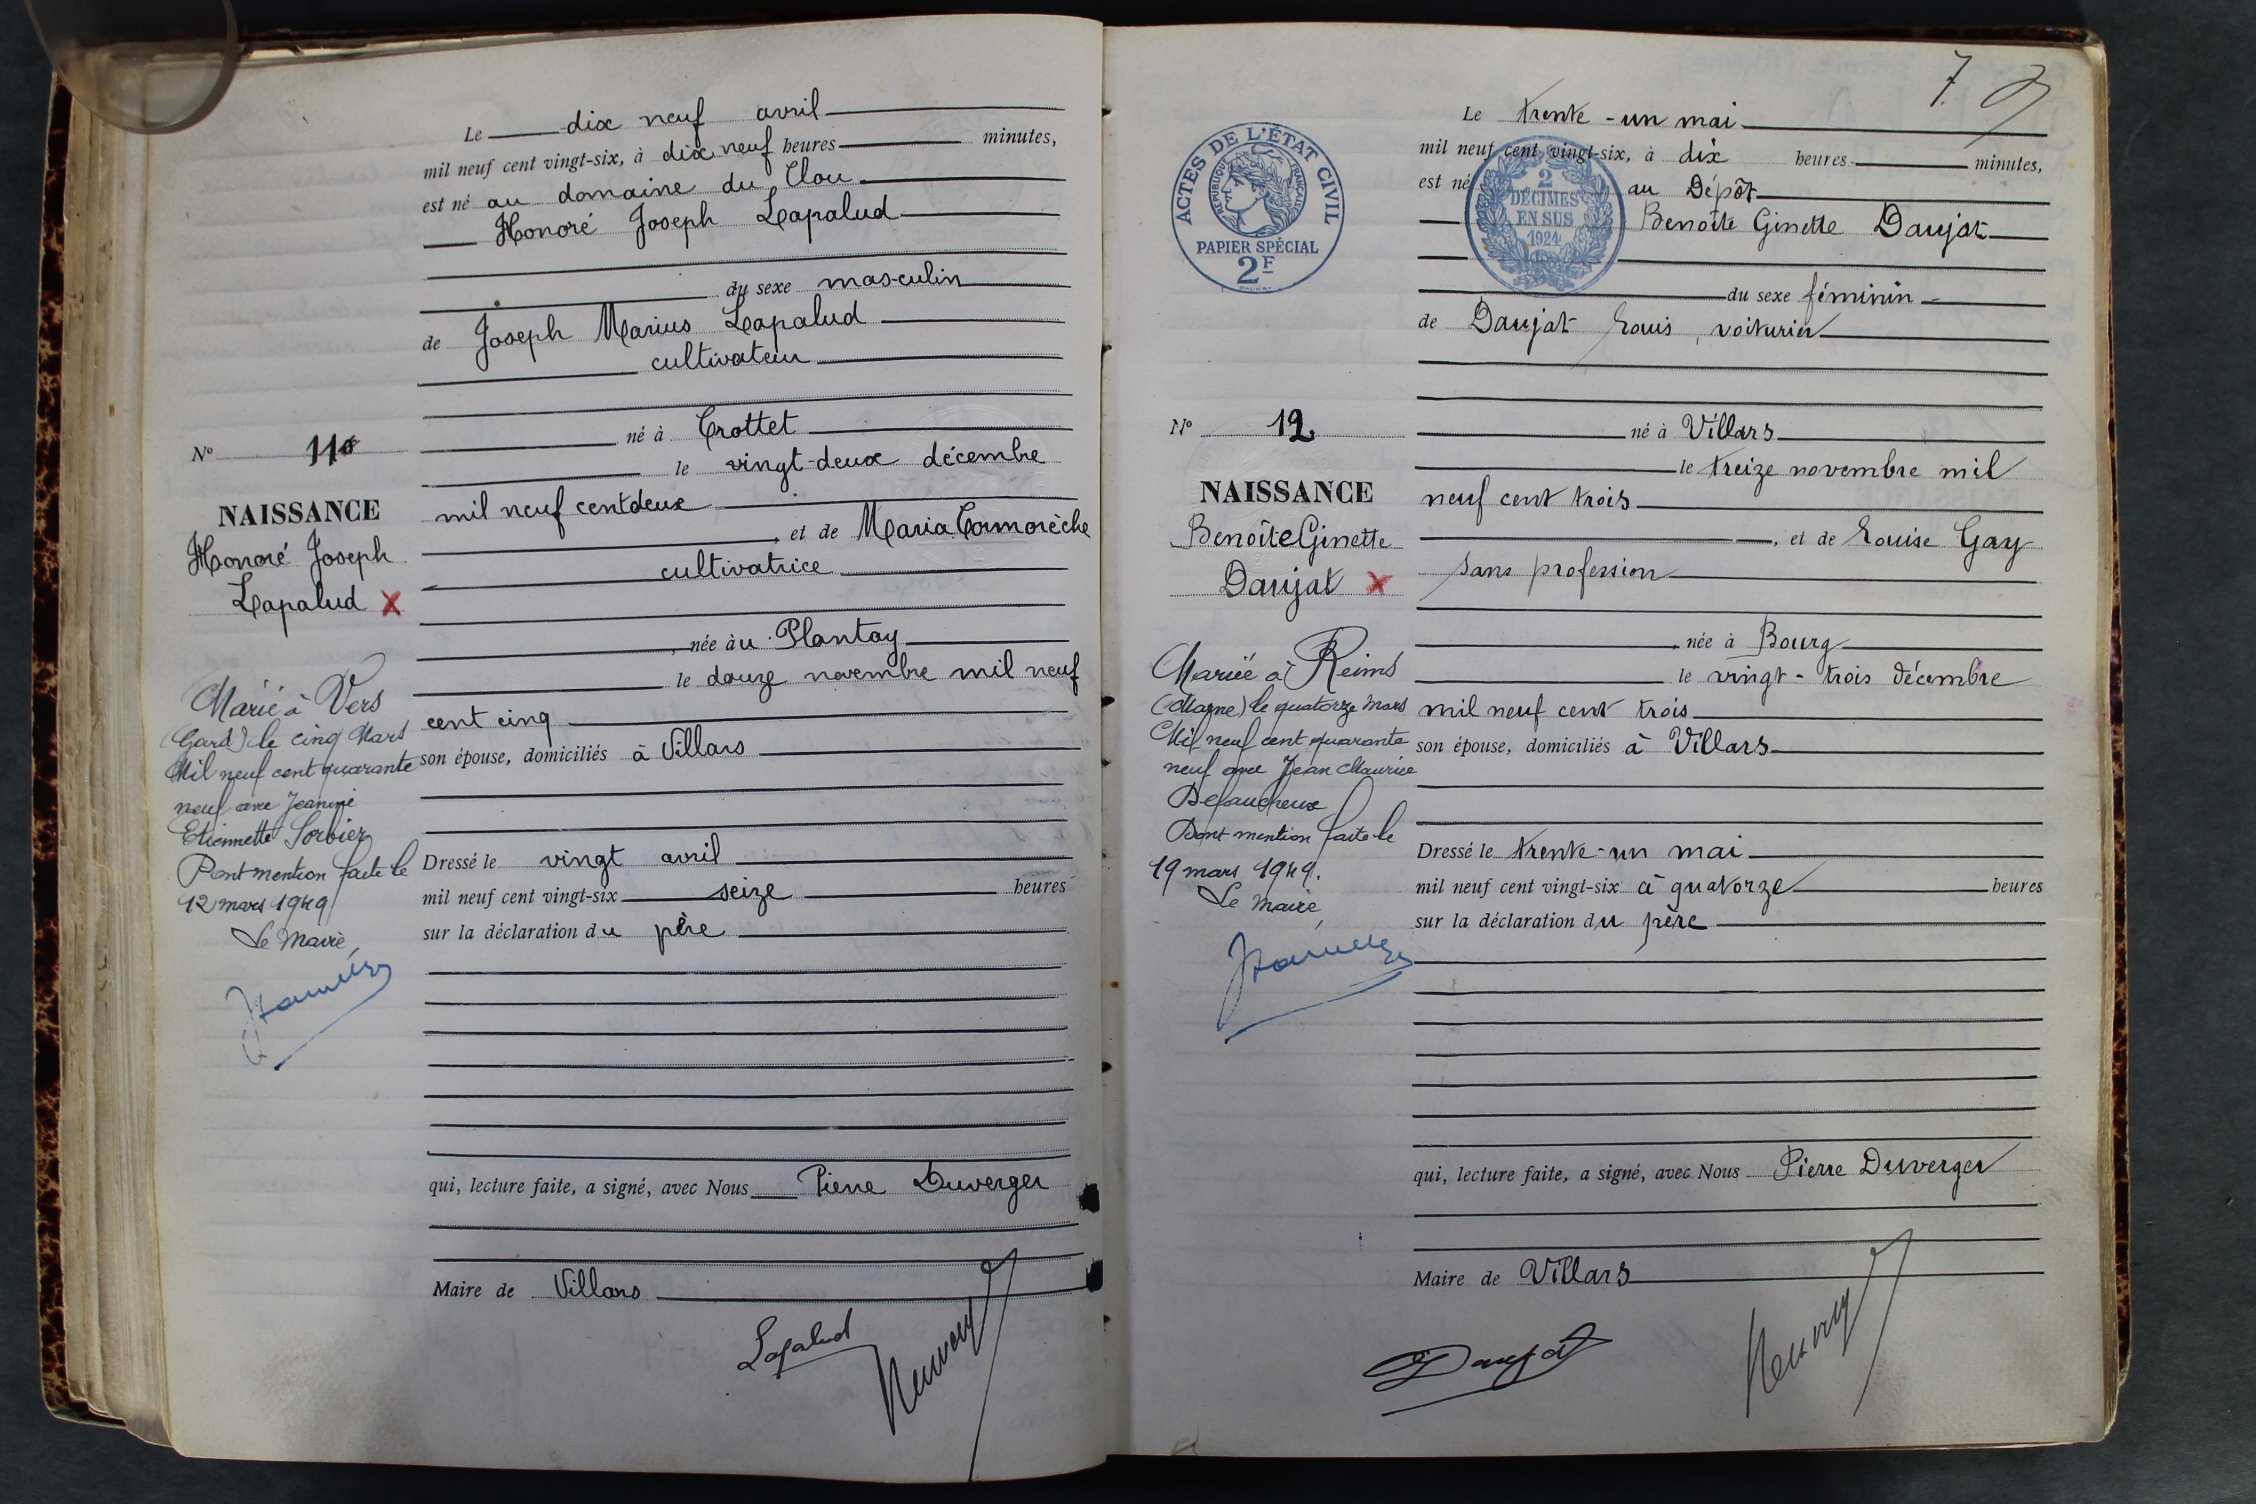 Le dix neuf avril
mil neuf cent vingt-six, à dix neuf heures minutes,
est né au domaine du Clou
Honoré Joseph Lapalud
du sexe masculin
de Joseph Marius Lapalud
cultivateur
né à Crottet
le vingt-deux décembre
mil neuf cent deux
, et de Maria Cormorèche
cultivatrice
, née àu Plantay
le douze novembre mil neuf
cent cinq
son épouse, domiciliés à Villars
Dressé le vingt avril
mil neuf cent vingt-six seize heures
sur la déclaration du père
qui, lecture faite, a signé, avec Nous Pierre Duverger
Maire de Villars
Lapalud
No 11
NAISSANCE
Honoré Joseph
Lapalud X
Marié à Vers
(Gard) le cinq Mars
Mil neuf cent quarante
neuf avec Jeanine
Etiennette Sorbier
Dont mention faite le
12 mars 1949
Le Maire,
7
ACTES DE L'ÉTAT CIVIL
RÉPUBLIQUE FRANÇAISE
PAPIER SPÉCIAL
2F
2
DÉCIMES
EN SUS
1924
Le trente-un mai
mil neuf cent vingt-six, à dix heures minutes,
est né au Dépôt
Benoîte Ginette Daujat
du sexe féminin
de Daujat Louis, voiturier
né à Villars
le treize novembre mil
neuf cent trois
, et de Louise Gay
sans profession
, née à Bourg
le vingt-trois décembre
mil neuf cent trois
son épouse, domiciliés à Villars
Dressé le trente-un mai
mil neuf cent vingt-six à quatorze heures
sur la déclaration du père
qui, lecture faite, a signé, avec Nous Pierre Duverger
Maire de Villars
Daujat
No 12
NAISSANCE
Benoîte Ginette
Daujat X
Mariée à Reims
(Marne) le quatorze Mars
Mil neuf cent quarante
neuf avec Jean Maurice
Defaucheux
Dont mention faite le
19 mars 1949.
Le Maire,